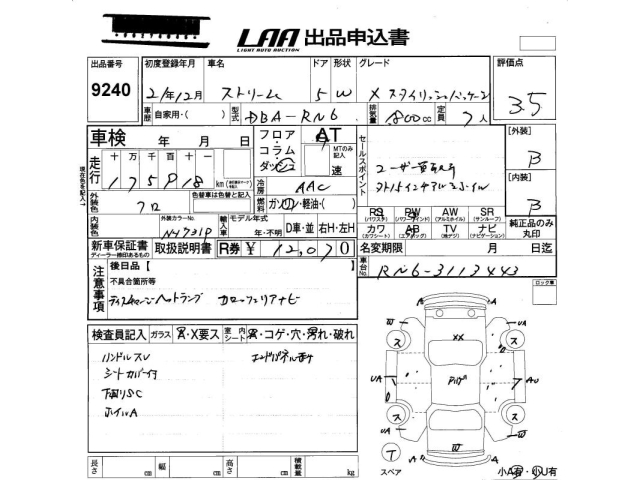 LAA 出品申込書
LIGHT AUTO AUCTION
出品番号 初度登録年月 車名 ドア 形状 グレード 評価点
9240 21年12月 ストリーム 5 W X スタイリッシュパッケージ 3.5
車歴 自家用・( ) 型式 DBA-RN6 排気量 1800cc 定員 7人
車検 年 月 日 フロア・コラム・ダッシュ AT MTのみ記入 速 セールスポイント
[外装] B
走行 十 万 千 百 十 一
175918 km
冷房 AAC
ユーザー買取車
[内装] B
現在の色を記入
外装色 クロ 色替車は色替と記入 燃料 ガソリン・軽油・( )
内装色 外装カラーNo. NH731P 輸入車 モデル年式 年・不明 D車・並 右H・左H
PS (パワステ) PW (パワーウインド) AW (アルミホイル) SR (サンルーフ)
カワ (カワシート) AB (エアバッグ) TV (地デジ) ナビ (ナビゲーション) 純正品のみ丸印
新車保証書 ディーラー捺印あるもの 取扱説明書 R券 ¥ 12,070 名変期限 月 日迄
車台No. RN6-3113443
注意事項 後日品【 】
不具合箇所等
ディスチャージヘッドランプ カロッツェリアナビ
ロック車
検査員記入 ガラス A・X要ス 室内 シート A・コゲ・穴・汚れ・破れ
ハンドルスレ
シートカバー付
下回りSC
ホイルA
長さ cm 幅 cm 高さ cm 積載量 kg
スペア 小A有・小U有